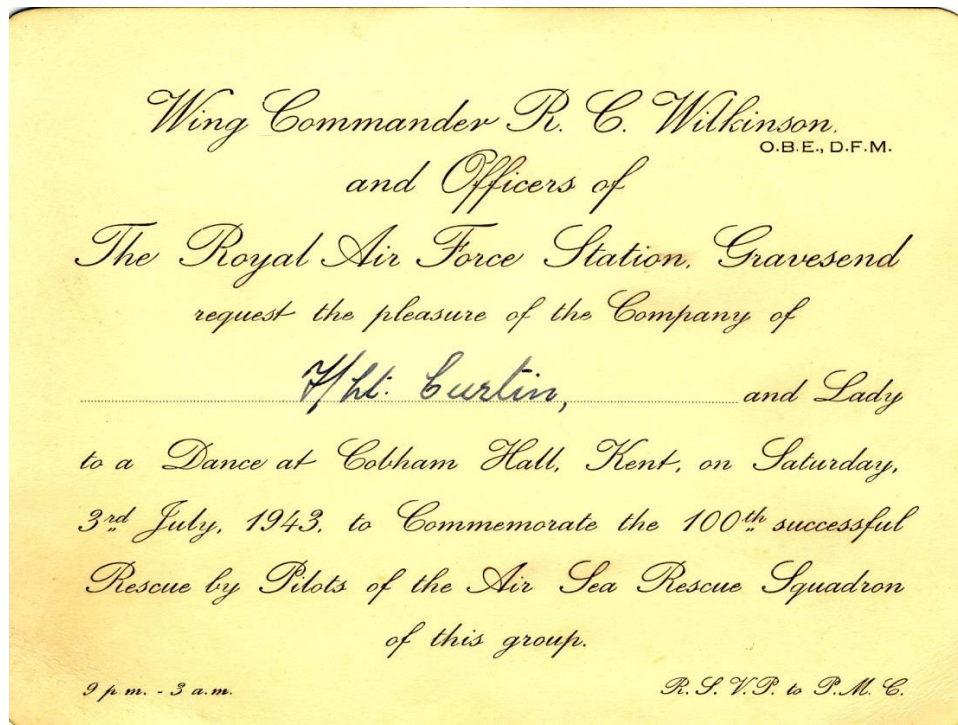 Wing Commander R. C. Wilkinson.
O.B.E., D.F.M.
and Officers of
The Royal Air Force Station, Gravesend
request the pleasure of the Company of
F/Lt. Curtin, and Lady
to a Dance at Cobham Hall, Kent, on Saturday,
3rd July, 1943, to Commemorate the 100th successful
Rescue by Pilots of the Air Sea Rescue Squadron
of this group.
9 p.m. - 3 a.m. R. S. V. P. to P. M. C.